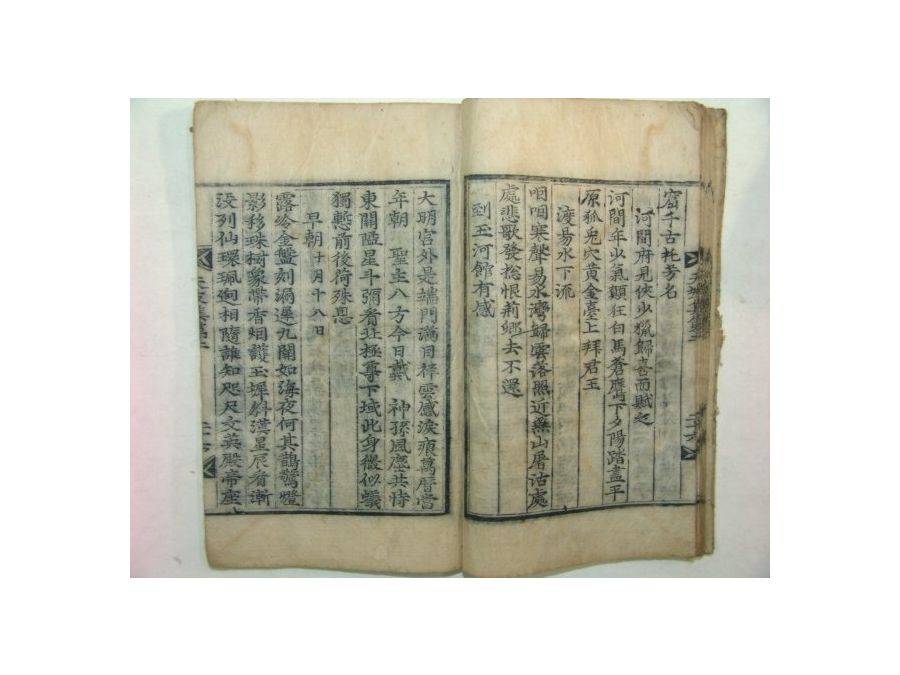 窟千古托芳名
河間府見俠少獵歸喜而賦之
河間年少氣顛狂白馬蒼鷹下夕陽踏盡平
原狐兎穴黃金臺上拜君王
渡易水下流
咽咽寒聲易水灣歸雲落照近燕山屠沽處
處悲歌發捴恨荊卿去不還
到玉河館有感
大明宮外是端門滿目祥雲感淚痕萬曆當
年朝 聖主八方今日戴 神孫風塵共恃
東關隘星斗彌看北極尊下域此身微似蟻
獨慙前後荷殊恩
早朝十月十八日
露冷金盤刻漏遲九關如海夜何其鵲驚燈
影移珠樹象帶香烟護玉墀斜漢星辰看漸
沒列仙環珮迥相隨誰知咫尺文英殿帝座